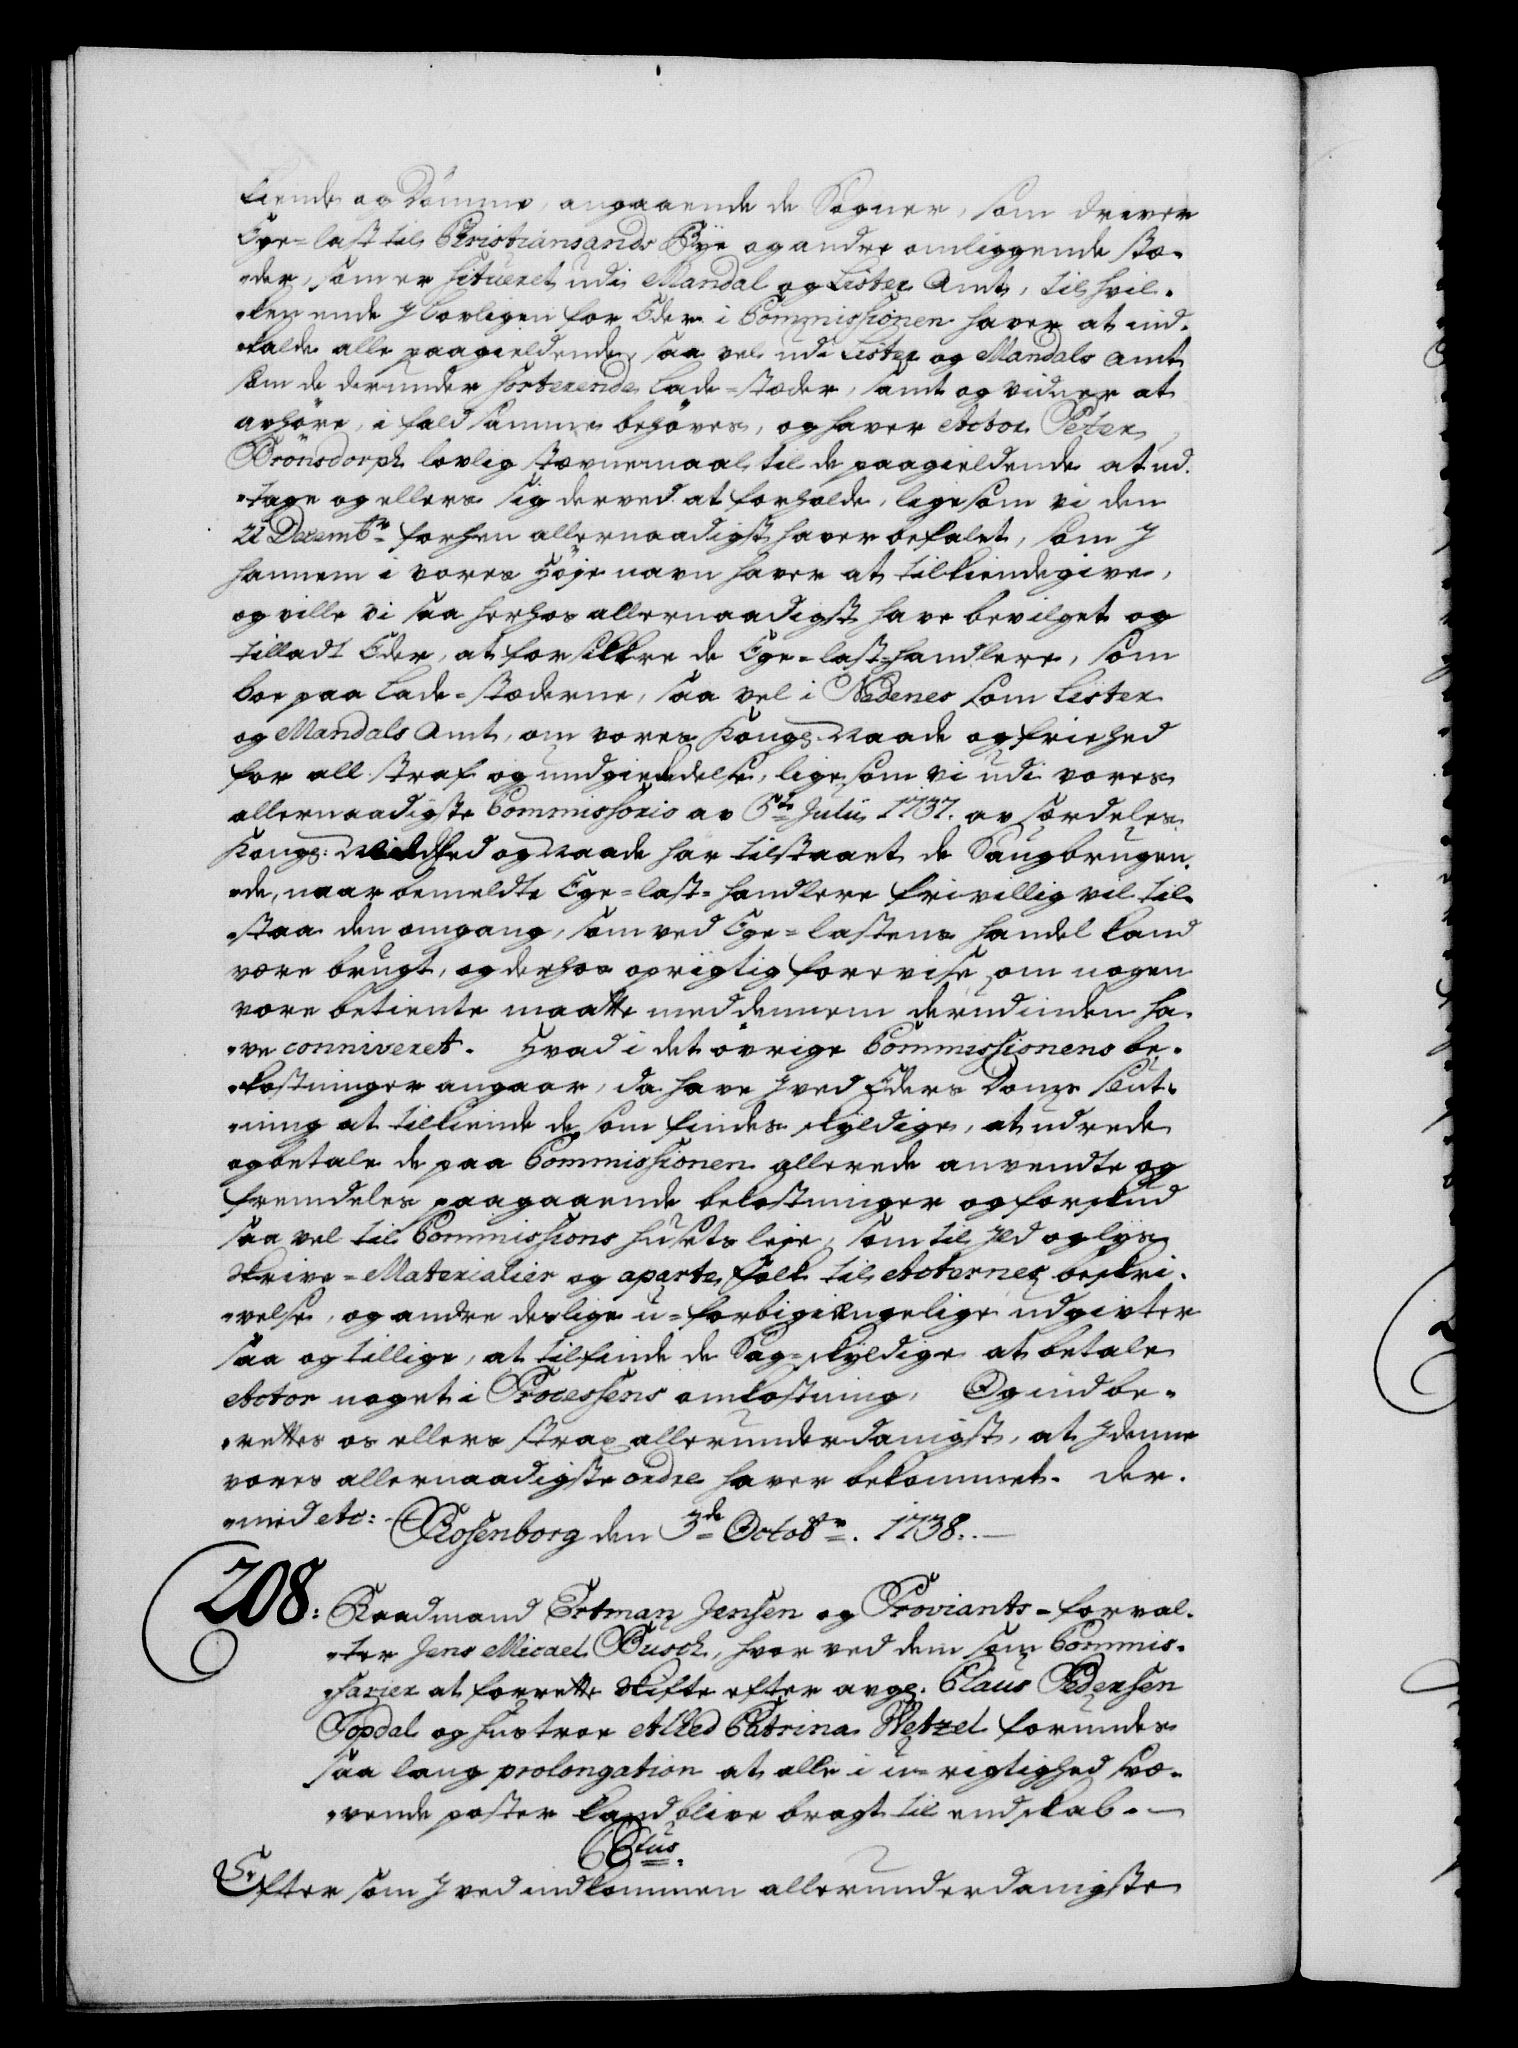 kiende og Dömme, angaaende de Sogner, som driver
Ege-last til Christiansands Bÿe og andre omliggende stæ-
„der, som er situeret udi Mandal og Lister Amt, til hvil-
„ken ende I lovligen for Eder i Commissionen haver at ind-
„kalde alle paagieldende, saa vel udi Lister og Mandals amt
som de derunder sorterende Lade-stæder, samt og vidner at
avhöre, i fald samme behöves, og haver Actor Peter
Brönsdorph lovlig stævnemaal til de paagieldende at ud-
„tage og ellers sig derved at forholde, ligesom vi den
21 Decembr. forhen allernaadigst haver befalet, som I
hannem i vores Höje navn haver at tilkiendegive,
og ville vi saa herhos allernaadigst have bevilget og
tilladt Eder, at forsikkre de Ege-last-handlere, som
boe paa Lade-stæderne, saa vel i Nedenes som Lister
og Mandals Amt, om vores Kongl. Naade og friehed
for all straf og undgieldelse, ligesom vi udi vores
allernaadigste Commissorio av 5te Julii 1737. av særdeles
Kongl: Mildhed og Naade har tilstaaet de Saugbrugen-
„de, naar bemeldte Ege-last-handlere frivillig vil til-
„staa den omgang, som ved Ege-lastens handel kand
være brugt, og derhos oprigtig forevise, om nogen
vore betiente maatte med dennem derudinden ha-
„ve conniveret. Hvad i det övrige Commissionens be-
„kostninger angaar, da have I ved Eders Doms slut-
„ning at tilkiende de som findes skyldige, at udrede
og betale de paa Commissionen allerede anvendte og
fremdeles paagaaende bekostninger og forskud
saa vel til Commissions husets leje, som til Ild og lÿs
Skrive-Materialier og aparte folk til Acternes beskri-
„velse, og andre deslige u-forbigiængelige udgivter
saa og tillige, at tilfinde de Sag-skÿldige at betale
Actor noget i Processens omkostning. Og indbe-
„rettes os ellers strax allerunderdanigst, at I denne
vores allernaadigste ordre haver bekommet. Der-
„med etc: Rosenborg den 3de Octobr. 1738.
208: Raadmand Tetman Jensen og Proviants-forval-
„ter Jens Micael Busch, hvor ved dem som Commis-
„sarier at forrette Skifte efter avg: Claus Pedersen
Topdal og hustroe Alhed Catrina Wetzel forundes
saa lang prolongation at alle i u-rigtighed svæ-
„vende poster kand blive bragt til endskab.
C 6tus.
Eftersom I ved indkommen allerunderdanigste